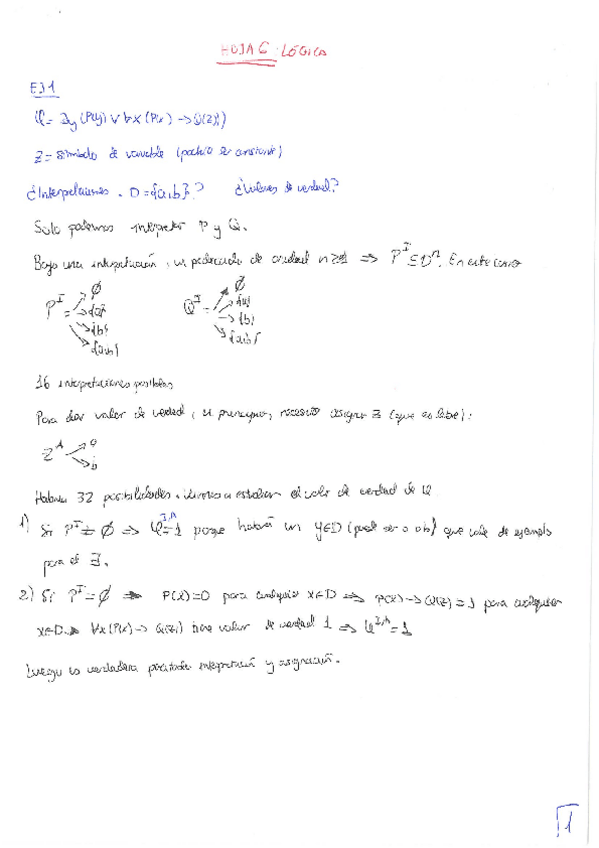 HOJA 6: LÓGICA
EJ 1
φ = ∃y (P(y) ∨ ∀x (P(x) → Q(z)))
z = símbolo de variable (podría ser constante)
¿Interpretaciones. D = {a,b}? ¿Valores de verdad?
Solo podemos interpretar P y Q.
Bajo una interpretación, un predicado de aridad n≥1 ⇒ P^I ⊆ D^n. En este caso
P^I = ∅ {a} {b} {a,b} Q^I = ∅ {a} {b} {a,b}
16 interpretaciones posibles
Para dar valor de verdad, en principio, necesito asignar z (que es libre):
z^A a b
Habría 32 posibilidades, vamos a estudiar el valor de verdad de φ
1) Si P^I ≠ ∅ ⇒ φ^{I,A} = 1 porque habrá un y∈D (puede ser a o b) que vale de ejemplo
para el ∃.
2) Si P^I = ∅ ⇒ P(x)=0 para cualquier x∈D ⇒ P(x) → Q(z) = 1 para cualquier
x∈D ⇒ ∀x (P(x) → Q(z)) tiene valor de verdad 1 ⇒ φ^{I,A} = 1
Luego es verdadera para toda interpretación y asignación.
1